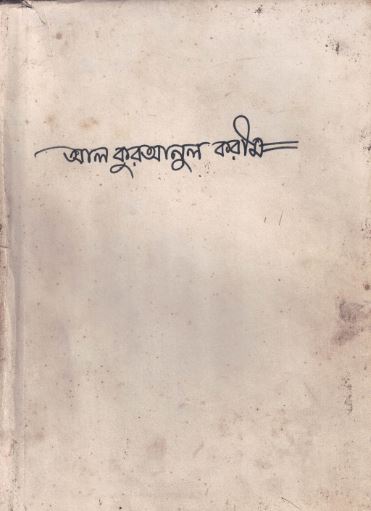 আল কুরআনুল করীম